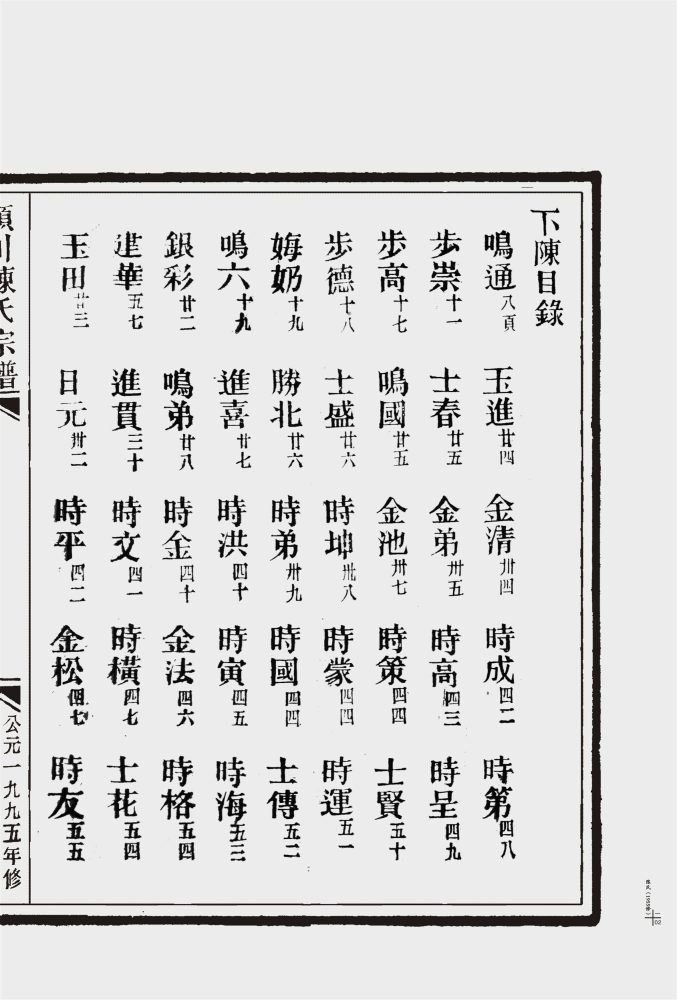 下陳目錄
鳴通八頁
玉進廿四
金清卅四
時成四二
時第四八
步崇十一
士春廿五
金弟卅五
時高四三
時呈四九
步高十七
鳴國廿五
金池卅七
時策四四
士賢五十
步德十八
士盛廿六
時坤卅八
時蒙四四
時運五一
姆奶十九
勝北廿六
時弟卅九
時國四四
士傳五二
鳴六十九
進喜廿七
時洪四十
時寅四五
時海五三
銀彩廿二
鳴弟廿八
時金四十
金法四六
時格五四
進華五七
進貫三十
時文四一
時橫四七
士花五四
玉田廿三
日元卅二
時平四二
金松四七
時友五五
川陳氏宗譜
公元一九九五年修